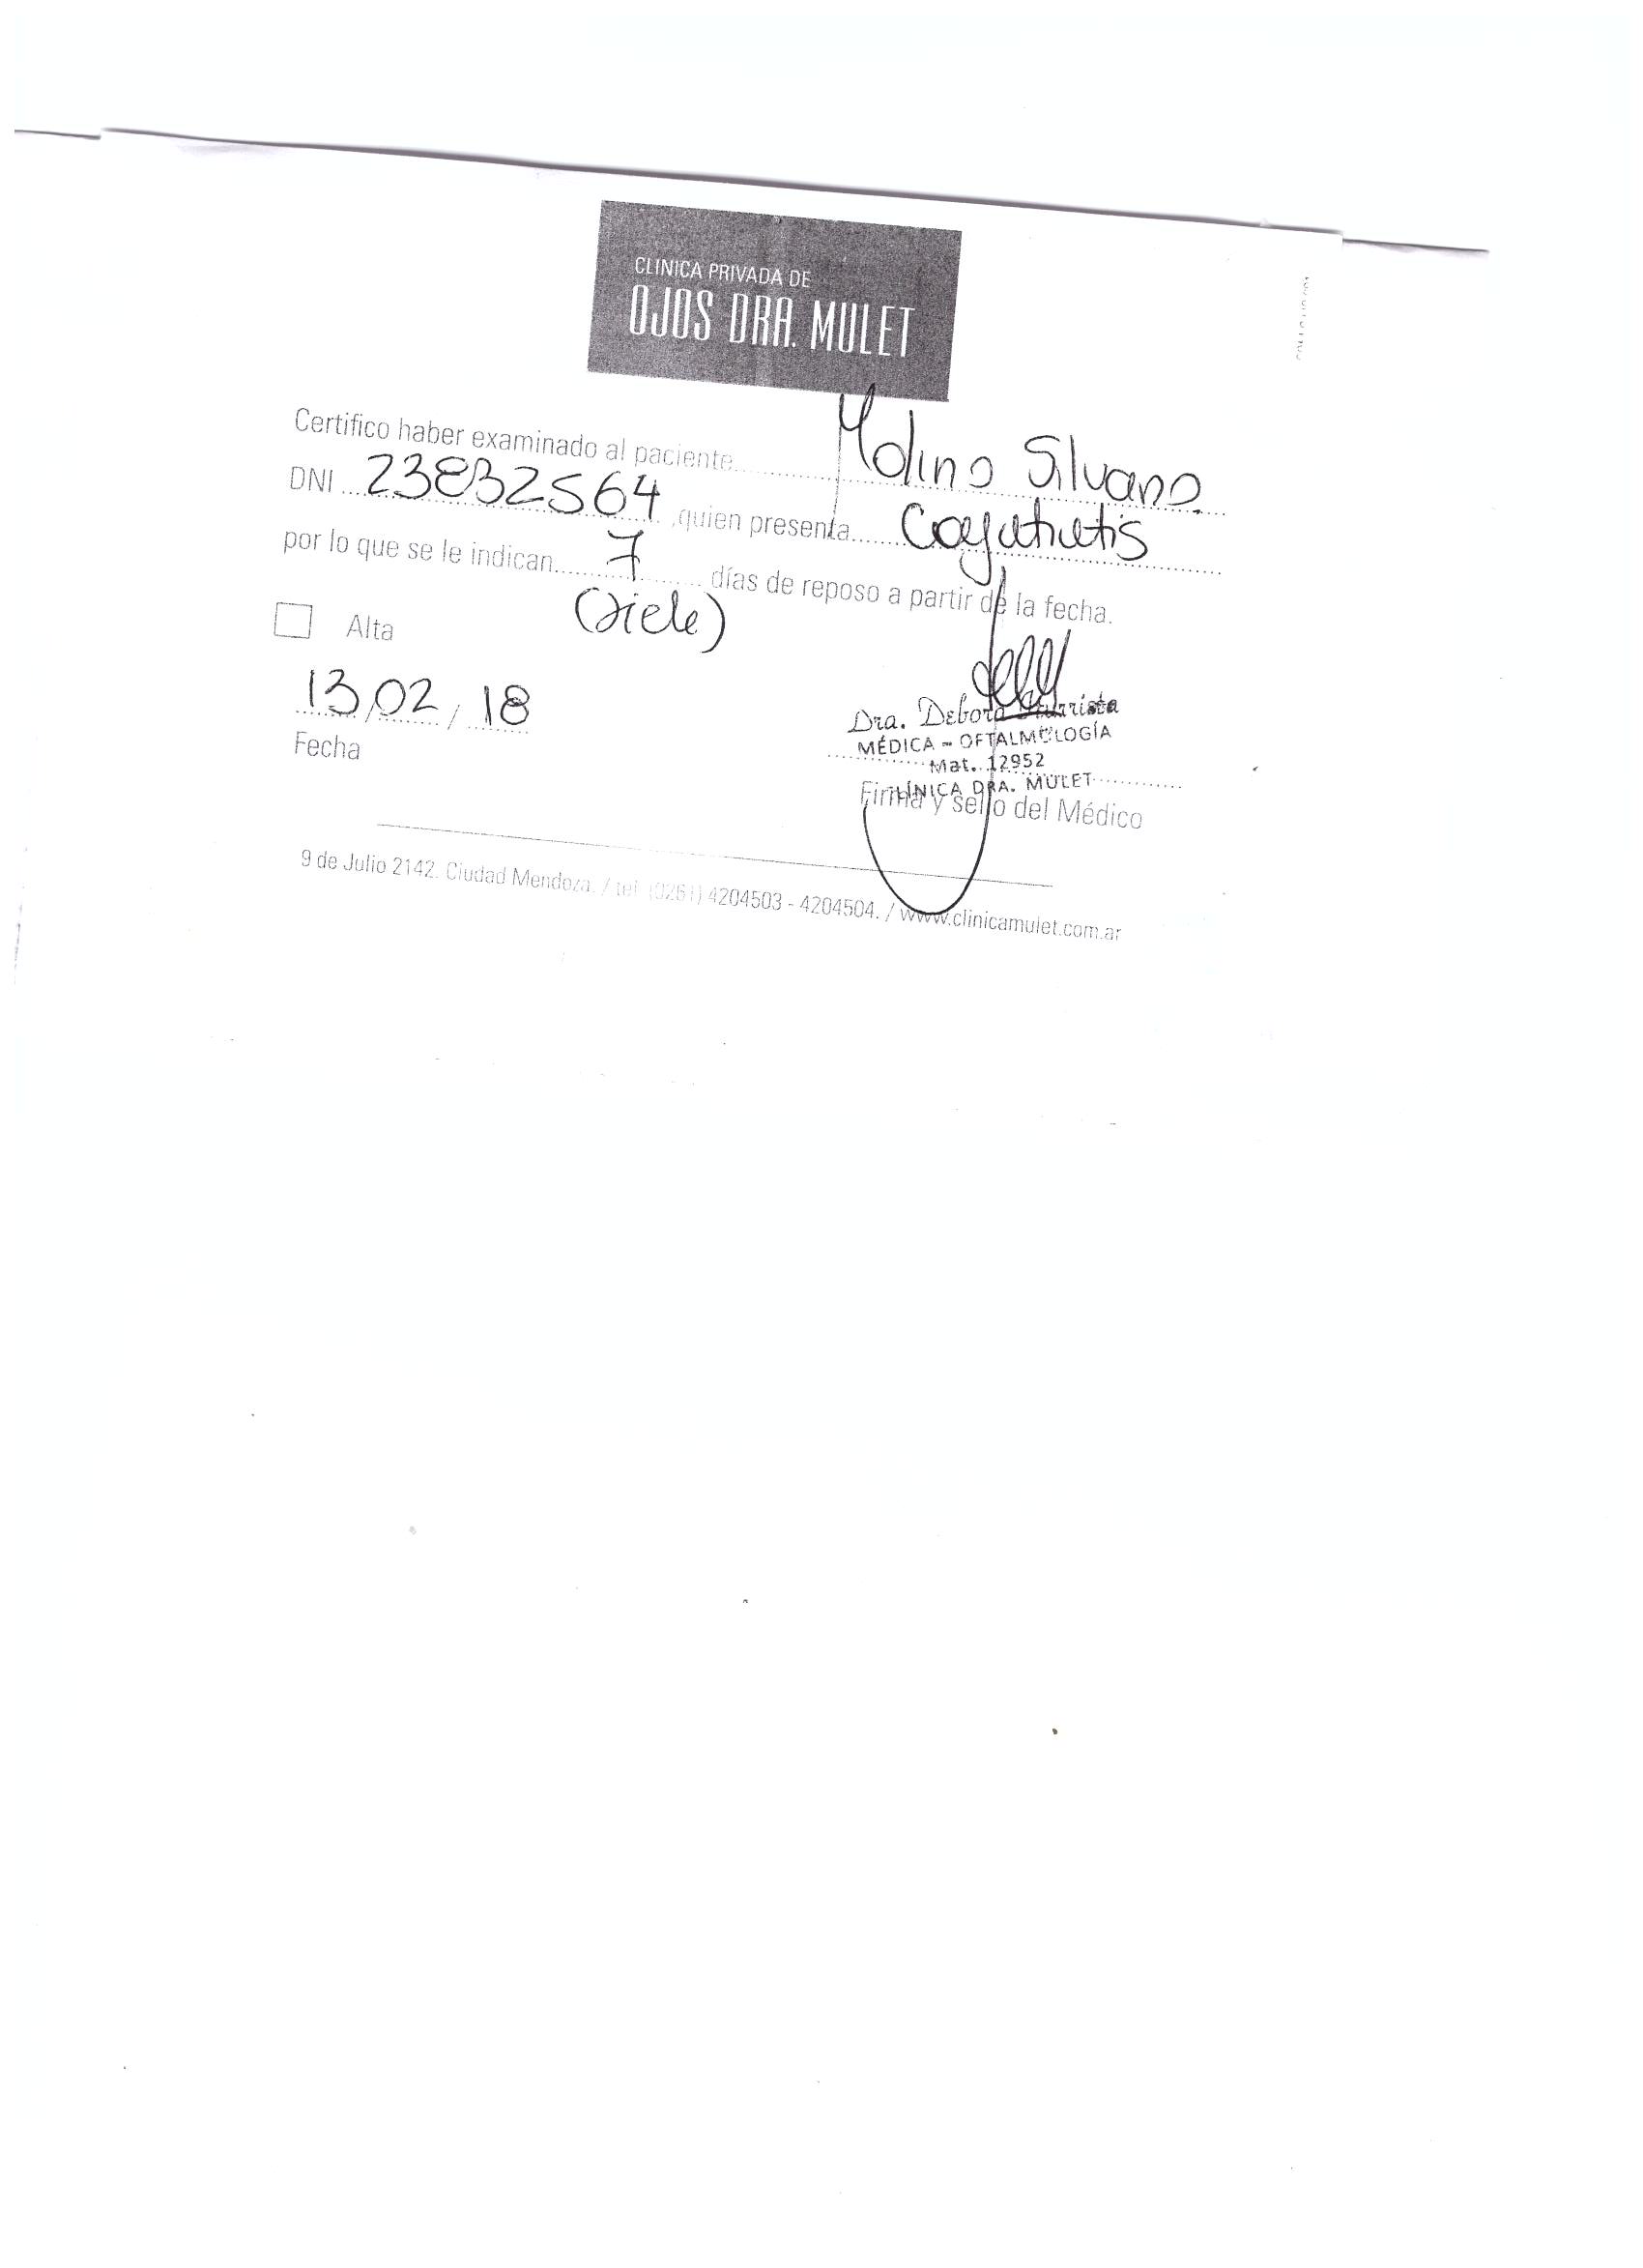 CLINICA PRIVADA DE
OJOS DRA. MULET
Certifico haber examinado al paciente Molina Silvana
DNI 23832564, quien presenta
por lo que se le indican 7 días de reposo a partir de la fecha.
(siete)
Alta
13/02/18
Fecha
Dra. Debora
MÉDICA - OFTALMOLOGÍA
Mat. 12952
CLÍNICA DRA. MULET
Firma y sello del Médico
9 de Julio 2142. Ciudad Mendoza. / tel. (0261) 4204503 - 4204504. / www.clinicamulet.com.ar